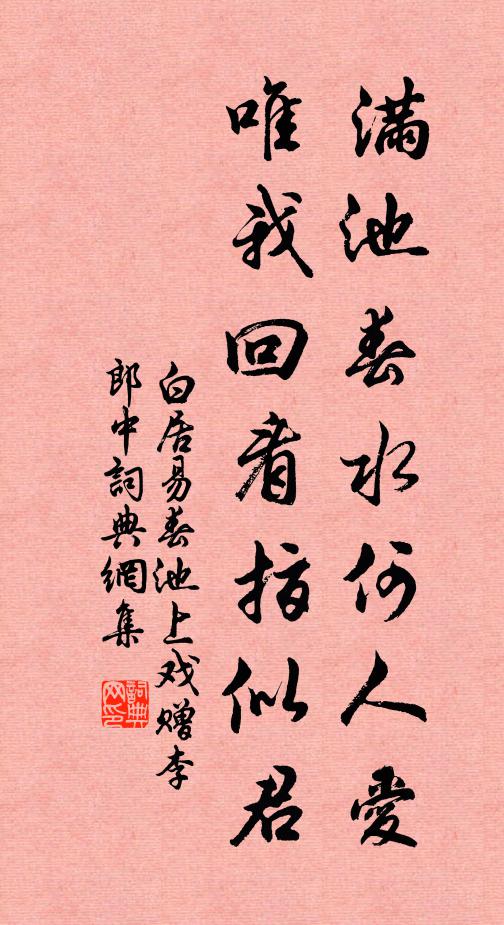 滿池春水何人愛
唯我回看指似君
白居易春池上戏赠李
郎中詞典網集
詞典
网印